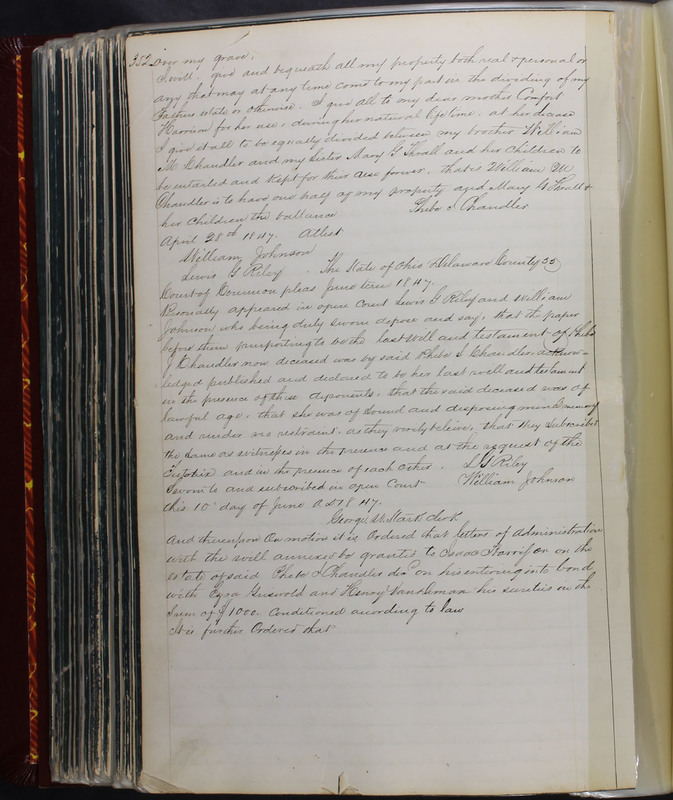 352 over my grave,
I will, give and bequeath all my property both real & personal or
any that may at any time come to my part in the dividing of my
Fathers estate or otherwise. I give all to my dear mother Comfort
Harrison for her use, during her natural life time. at her decease
I give it all to be equally divided between my brother William
M Chandler and my Sister Mary G Thrall and her children to
be entailed and kept for their use forever, that is William M
Chandler is to have one half of my property and Mary G Thrall &
her children the ballance
Phebe J Chandler
April 28th 1847. Attest
William Johnson
Lewis G Riley
The State of Ohio Delaware County SS
Court of Common pleas June term 1847.
Personally appeared in open Court Lewis G Riley and William
Johnson who being duly sworn depose and say, that the paper
before them purporting to be the last will and testament of Phebe
J Chandler now deceased was by said Phebe J Chandler acknow-
ledged published and declared to be her last will and testament
in the presence of these deponents, that the said deceased was of
lawful age, that she was of Sound and disposing mind & memory
and under no restraint, as they verily believe, that they subscribed
the same as witnesses in the presence and at the request of the
Testatrix and in the presence of each other.
L G Riley
Sworn to and subscribed in open Court
William Johnson
this 10th day of June A D 1847.
George W Stark Clerk
And thereupon On motion it is Ordered that letters of Administration
with the will annexed be granted to Isaac Harrison on the
estate of said Phebe J Chandler decd on his entering into bond
with Ezra Griswold and Henry Vandeman his sureties in the
Sum of $1000. Conditioned according to law
It is further Ordered that